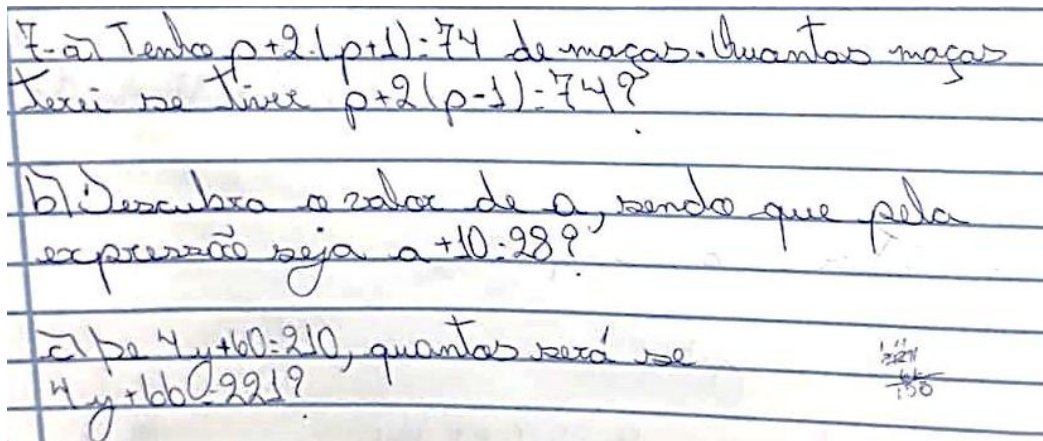 7-a) Tenho p+2.(p+1)=74 de maças. Quantas maças
terei se tiver p+2(p-1)=74?
b) Descubra o valor de a, sendo que pela
expressão seja a+10=28?
c) Se 4y+60=210, quantos será se
4y+66=221?